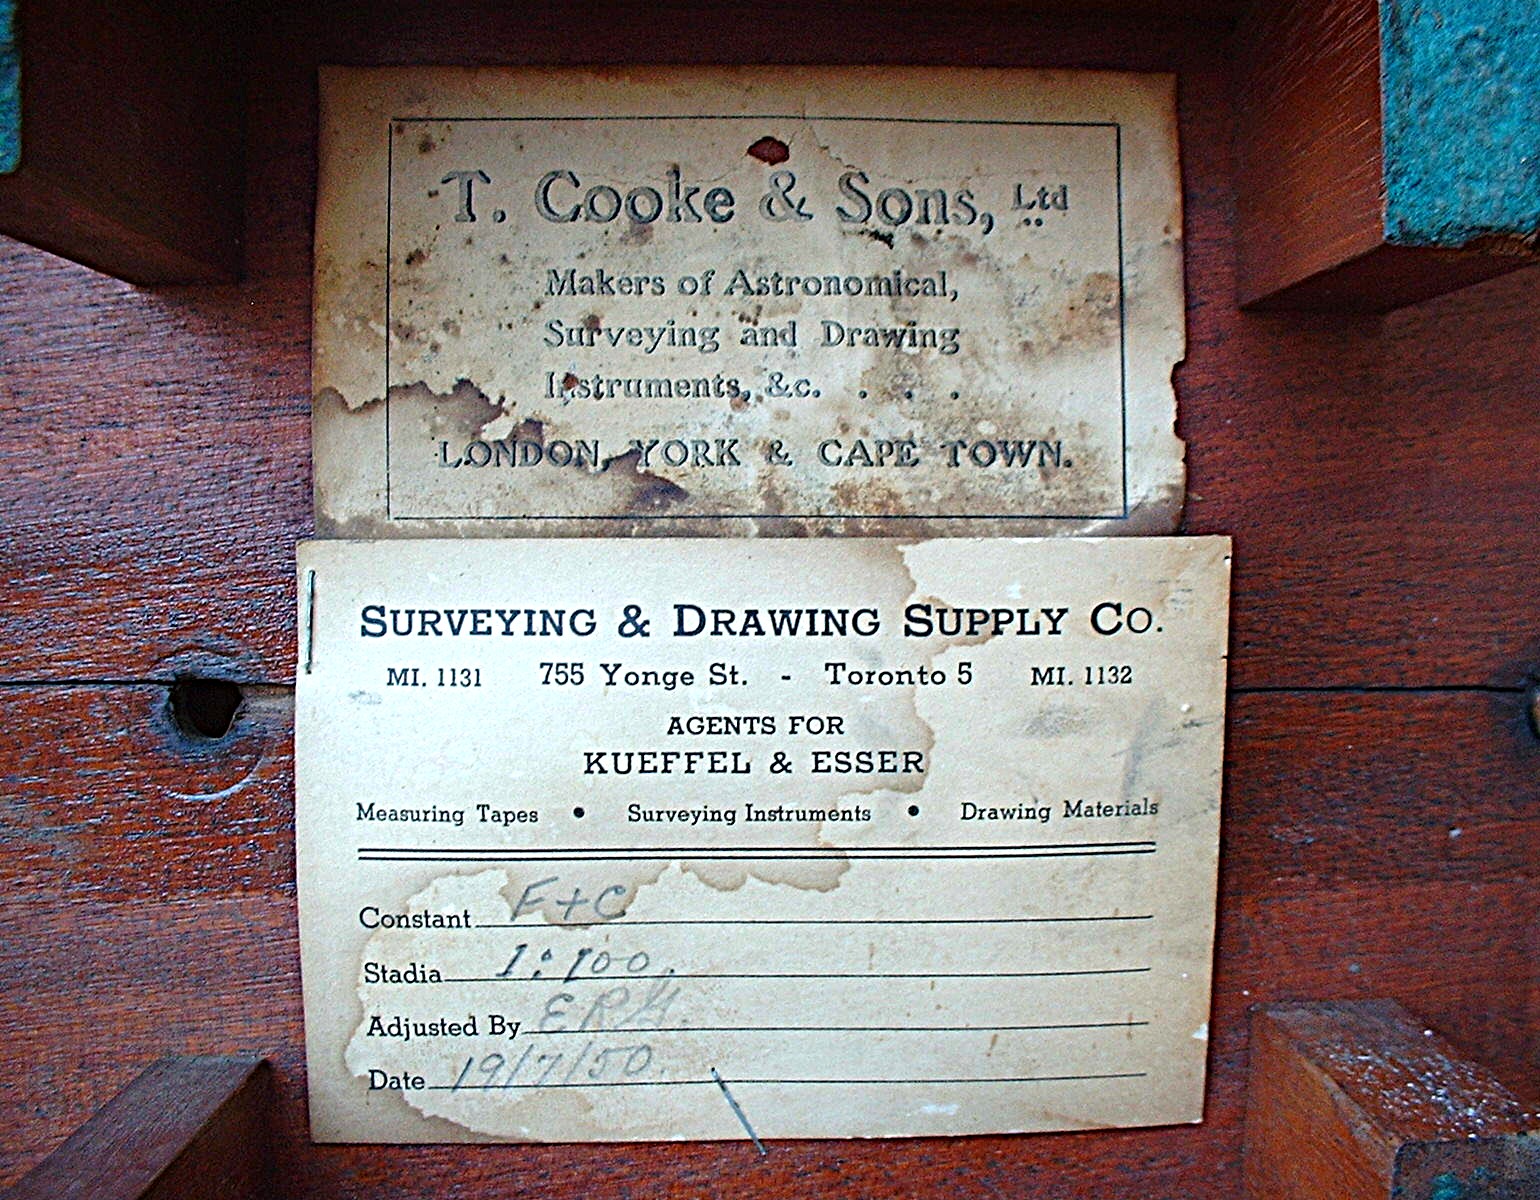 T. Cooke & Sons, Ltd
Makers of Astronomical,
Surveying and Drawing
Instruments, &c. . . .
LONDON, YORK & CAPE TOWN.
SURVEYING & DRAWING SUPPLY CO.
MI. 1131 755 Yonge St. - Toronto 5 MI. 1132
AGENTS FOR
KUEFFEL & ESSER
Measuring Tapes • Surveying Instruments • Drawing Materials
Constant F+C
Stadia 1:100.
Adjusted By
Date 19/7/50.